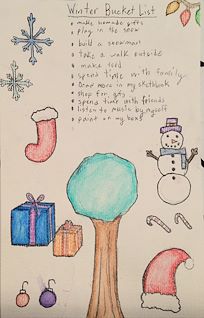 Winter Bucket List
make homade gifts
play in the snow
build a snowman
take a walk outside
make food
spend time with family
Draw more in my sketchbook
shop for gifts
spend time with friends
listen to music by myself
paint on my box